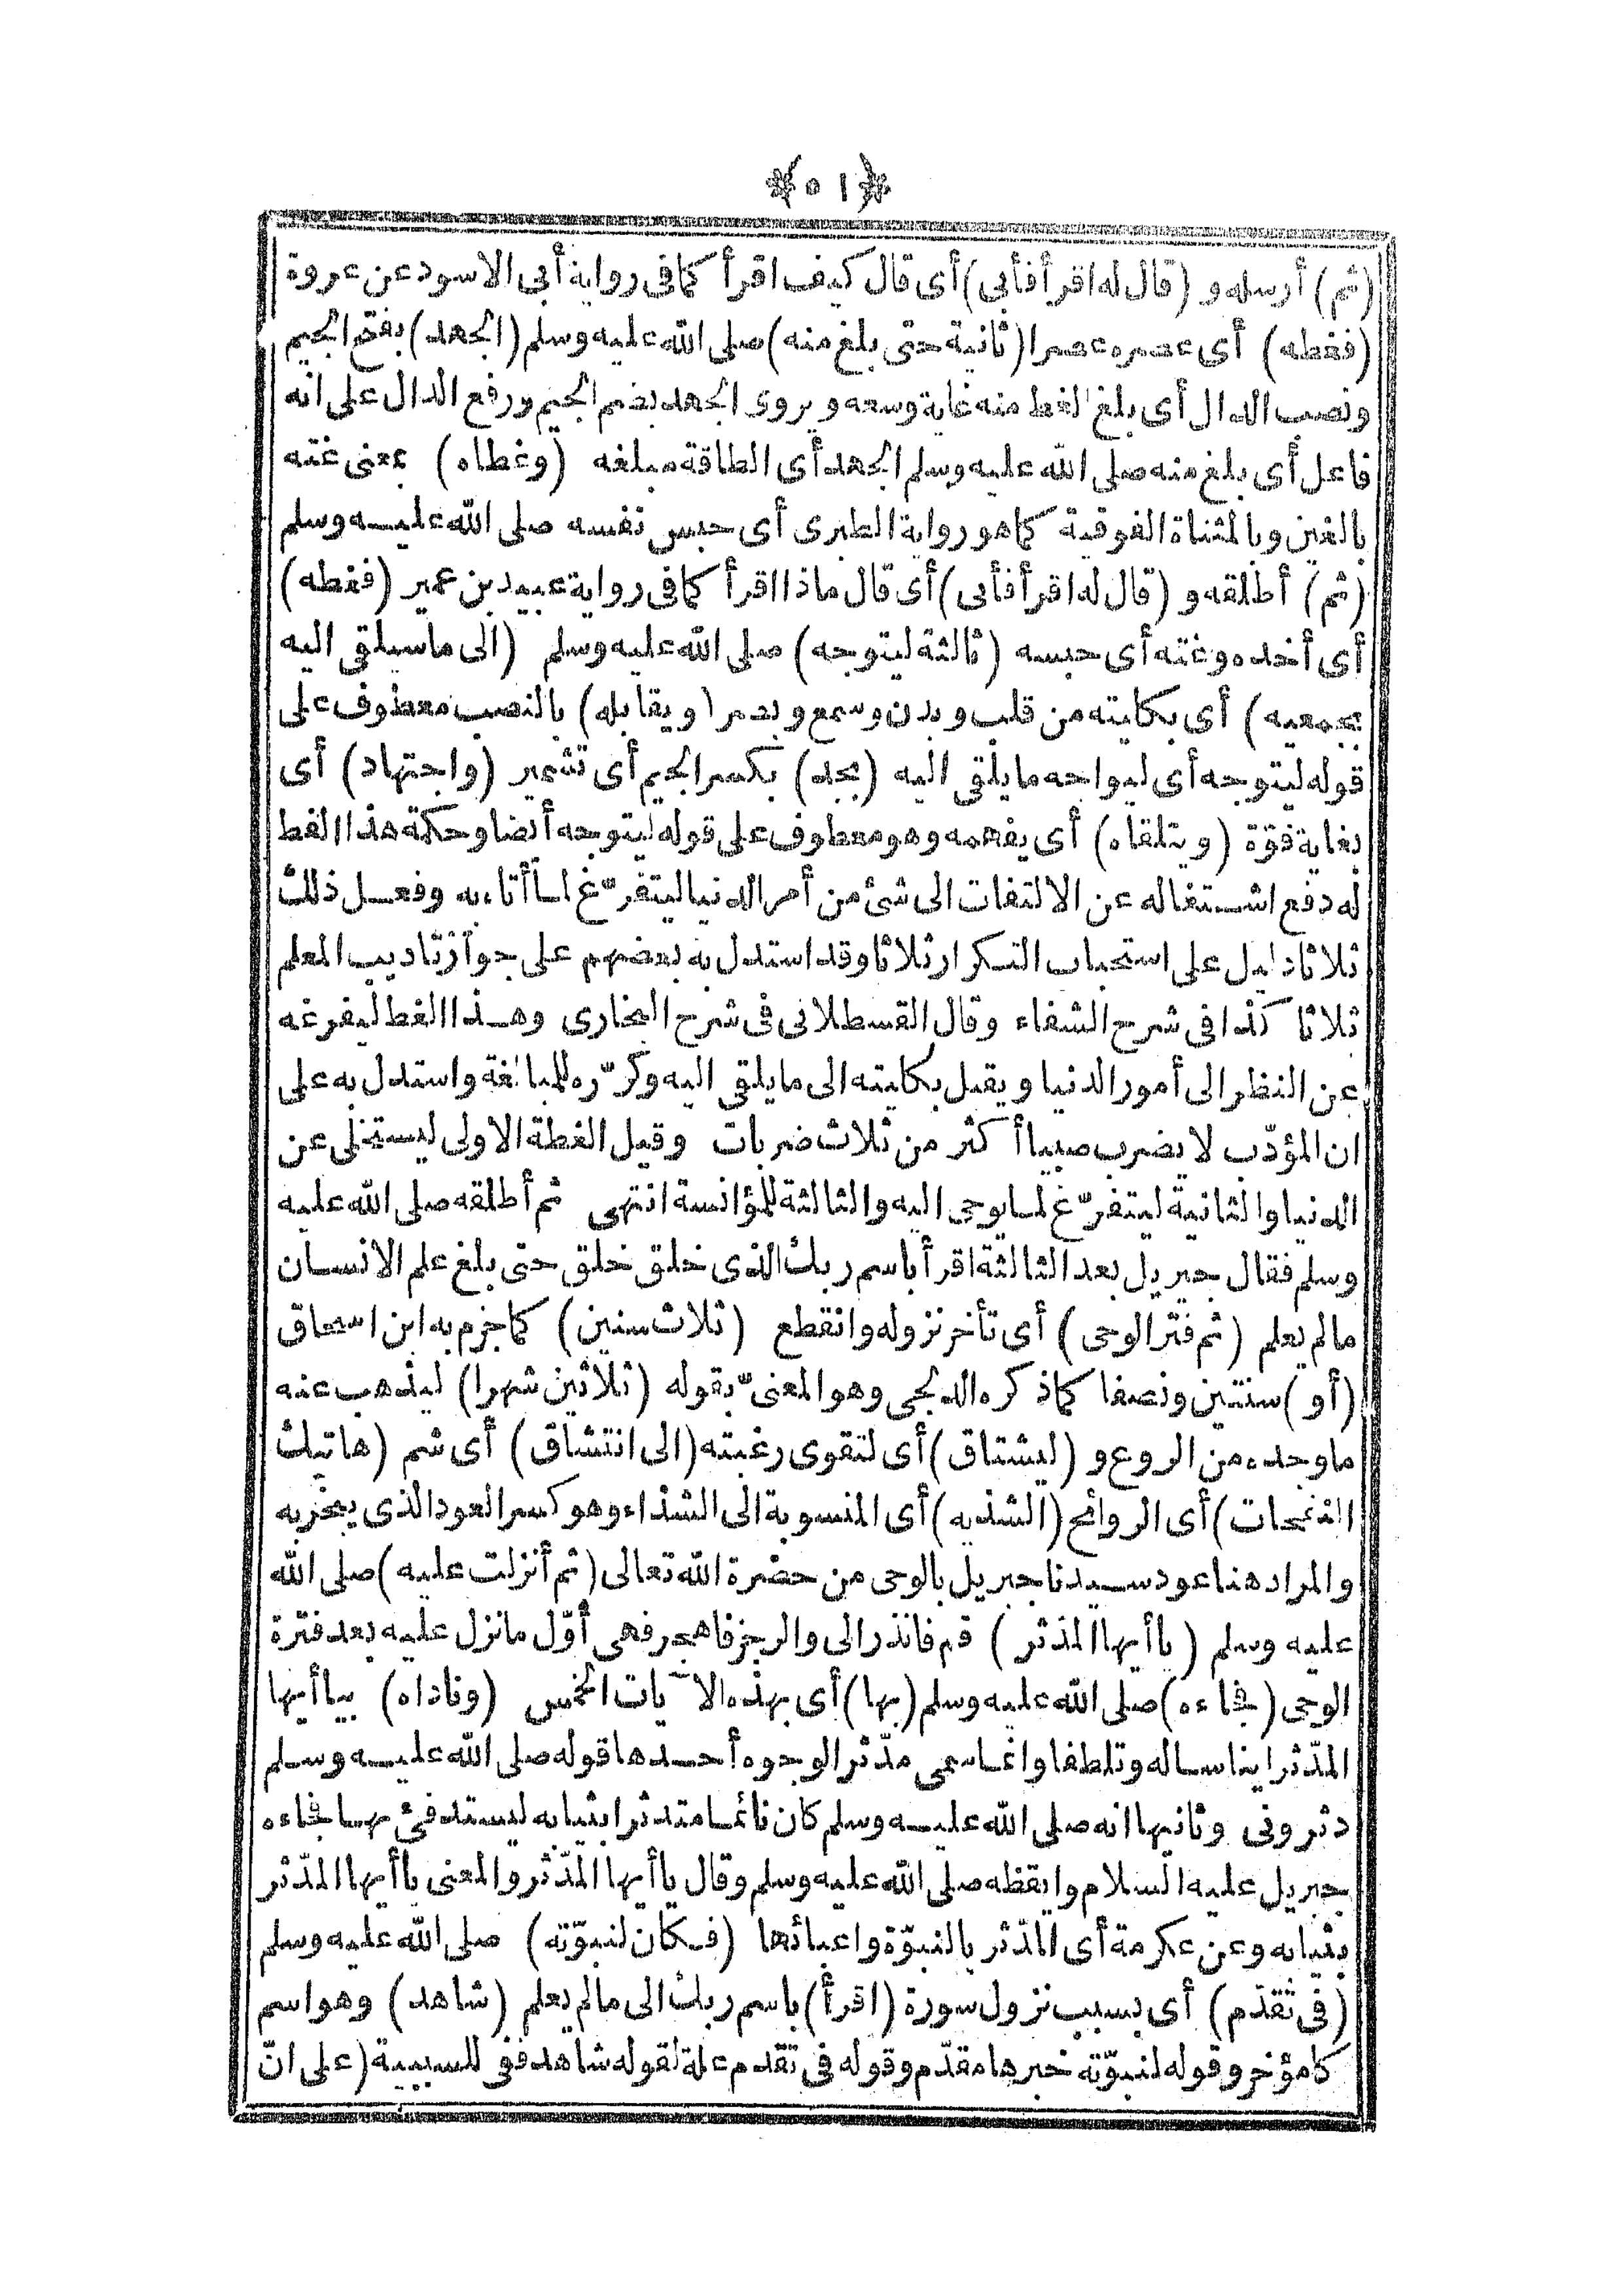 ﴿٥١﴾
(ثم) أرسله و (قال له اقرأ فأبى) أى قال كيف اقرأ كما فى رواية أبى الاسود عن عروة
(فغطه) أى عصره عصرا (ثانية حتى بلغ منه) صلى الله عليه وسلم (الجهد) بفتح الجيم
ونصب الدال أى بلغ الغط منه غاية وسعه ويروى الجهد بضم الجيم ورفع الدال على انه
فاعل أى بلغ منه صلى الله عليه وسلم الجهد أى الطاقة مبلغه (وغطاه) بمعنى غته
بالغين وبالمثناة الفوقية كما هو رواية الطبرى أى حبس نفسه صلى الله عليه وسلم
(ثم) أطلقه و (قال له اقرأ فأبى) أى قال ماذا اقرأ كما فى رواية عبيد بن عمير (فغطه)
أى أخذه وغته أى حبسه (ثالثة ليتوجه) صلى الله عليه وسلم (الى ما سيلقى اليه
بجمعيه) أى بكليته من قلب وبدن وسمع وبصر (ويقابله) بالنصب معطوف على
قوله ليتوجه أى ليواجه ما يلقى اليه (بجد) بكسر الجيم أى تشمير (واجتهاد) أى
بغاية قوّة (ويتلقاه) أى يفهمه وهو معطوف على قوله ليتوجه أيضا وحكمة هذا الغط
له دفع اشتغاله عن الالتفات الى شئ من أمر الدنيا ليتفرّغ لما أتاه به وفعل ذلك
ثلاثا دليل على استحباب التكرار ثلاثا وقد استدل به بعضهم على جواز تاديب المعلم
ثلاثا كذا فى شرح الشفاء وقال القسطلانى فى شرح البخارى وهذا الغط ليفرغه
عن النظر الى أمور الدنيا ويقبل بكليته الى ما يلقى اليه وكرّره للمبالغة واستدل به على
ان المؤدّب لا يضرب صبيا أكثر من ثلاث ضربات وقيل الغطة الاولى ليستخلى عن
الدنيا والثانية ليتفرّغ لما يوحى اليه والثالثة للمؤانسة انتهى ثم أطلقه صلى الله عليه
وسلم فقال جبريل بعد الثالثة اقرأ باسم ربك الذى خلق خلق حتى بلغ علم الانسان
مالم يعلم (ثم فتر الوحى) أى تأخر نزوله وانقطع (ثلاث سنين) كما جزم به ابن اسحاق
(أو) سنتين ونصفا كما ذكره الدلجى وهو المعنىّ بقوله (ثلاثين شهرا) ليذهب عنه
ما وجده من الروع و (ليشتاق) أى لتقوى رغبته (الى انتشاق) أى شم (هاتيك
النفحات) أى الروائح (الشذيه) أى المنسوبة الى الشذاء وهو كسر العود الذى يبخر به
والمراد هنا عود سيدنا جبريل بالوحى من حضرة الله تعالى (ثم أنزلت عليه) صلى الله
عليه وسلم (يا أيها المدّثر) قم فانذر الى والرجز فاهجر فهى أوّل ما نزل عليه بعد فترة
الوحى (فجاءه) صلى الله عليه وسلم (بها) أى بهذه الآيات الخمس (وناداه) بيا أيها
المدّثر ايناسا له وتلطفا وانما سمى مدّثر الوجوه أحدها قوله صلى الله عليه وسلم
دثرونى وثانيها انه صلى الله عليه وسلم كان نائما متدثرا بثيابه ليستدفئ بها فجاءه
جبريل عليه السلام وايقظه صلى الله عليه وسلم وقال يا أيها المدّثر والمعنى يا أيها المدّثر
بثيابه وعن عكرمة أى المدّثر بالنبوّة واعبائها (فكان لنبوّته) صلى الله عليه وسلم
(فى تقدّم) أى بسبب نزول سورة (اقرأ) باسم ربك الى مالم يعلم (شاهد) وهو اسم
كا مؤخر وقوله لنبوّته خبرها مقدّم وقوله فى تقدم علة لقوله شاهد ففى للسببية (على انّ